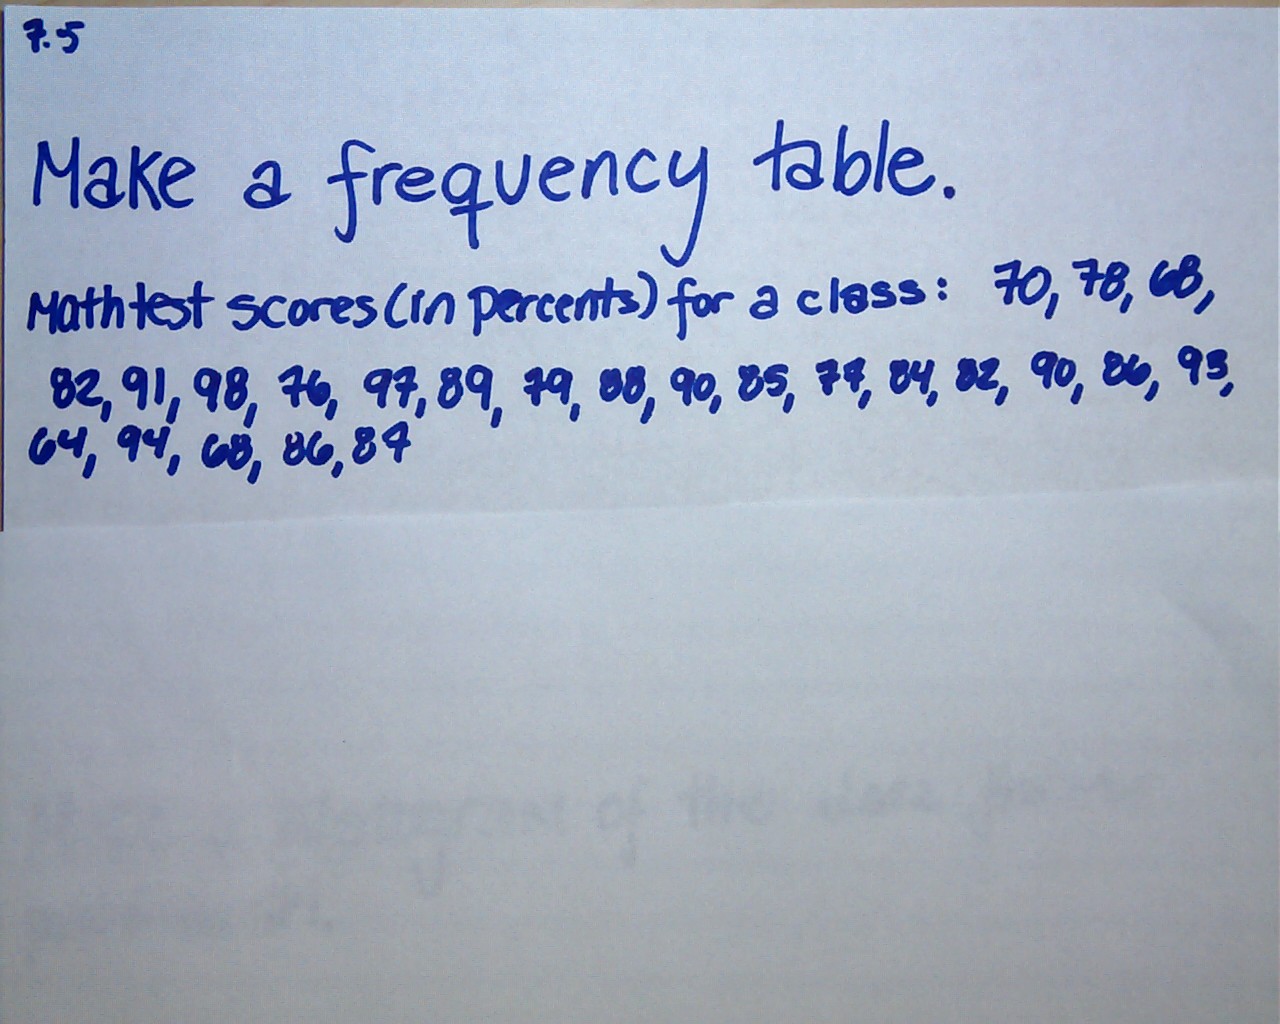 7.5
Make a frequency table.
Math test scores (in percents) for a class: 70, 78, 68,
82, 91, 98, 76, 97, 89, 79, 88, 90, 85, 77, 84, 82, 90, 86, 93,
64, 94, 68, 86, 84